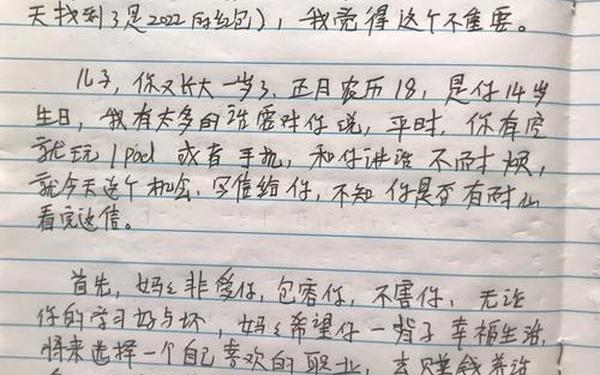 天找到了是2022的红包），我觉得这个不重要。
儿子，你又长大一岁了，正月农历18，是你14岁
生日，我有太多的话要对你说，平时，你有空
就玩ipad 或者手机，和你讲话 不耐烦，
就今天这个机会，写信给你，不知 你是否有耐心
看完这信。
首先，妈妈非爱你，包容你，不害你，无论
你的学习好与坏，妈妈希望你一辈子幸福生活，
将来选择一个自己喜欢的职业，去赚钱养活